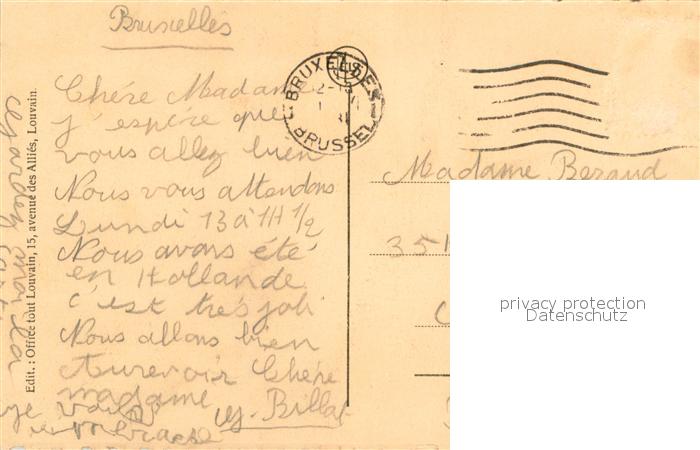 Bruxelles
Chére Madame
j'espére que
vous allez bien
Nous vous attendons
Lundi 13 à 1H 1/2
Nous avons été
en Hollande
c'est très joli
Nous allons bien
Aurevoir Chére
madame
je vous
embrasse
gardez moi la
Edit. : Office tout Louvain, 15, avenue des Alliés, Louvain.
BRUXELLES
BRUSSEL
Madame Beraud
35
privacy protection
Datenschutz